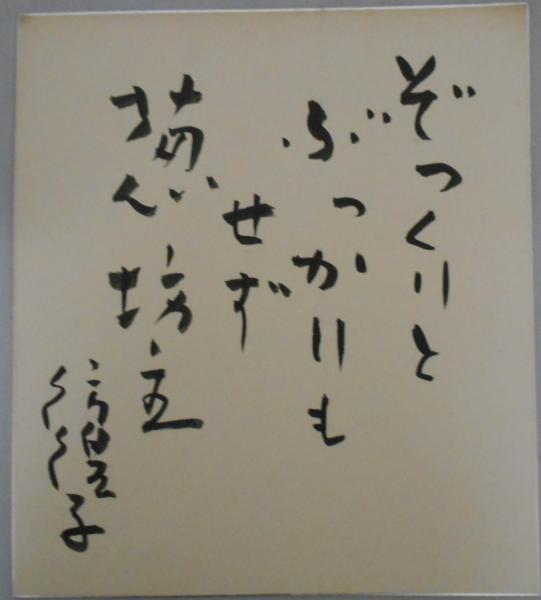 ぞつくりと
ぶつかりも
せず
葱坊主